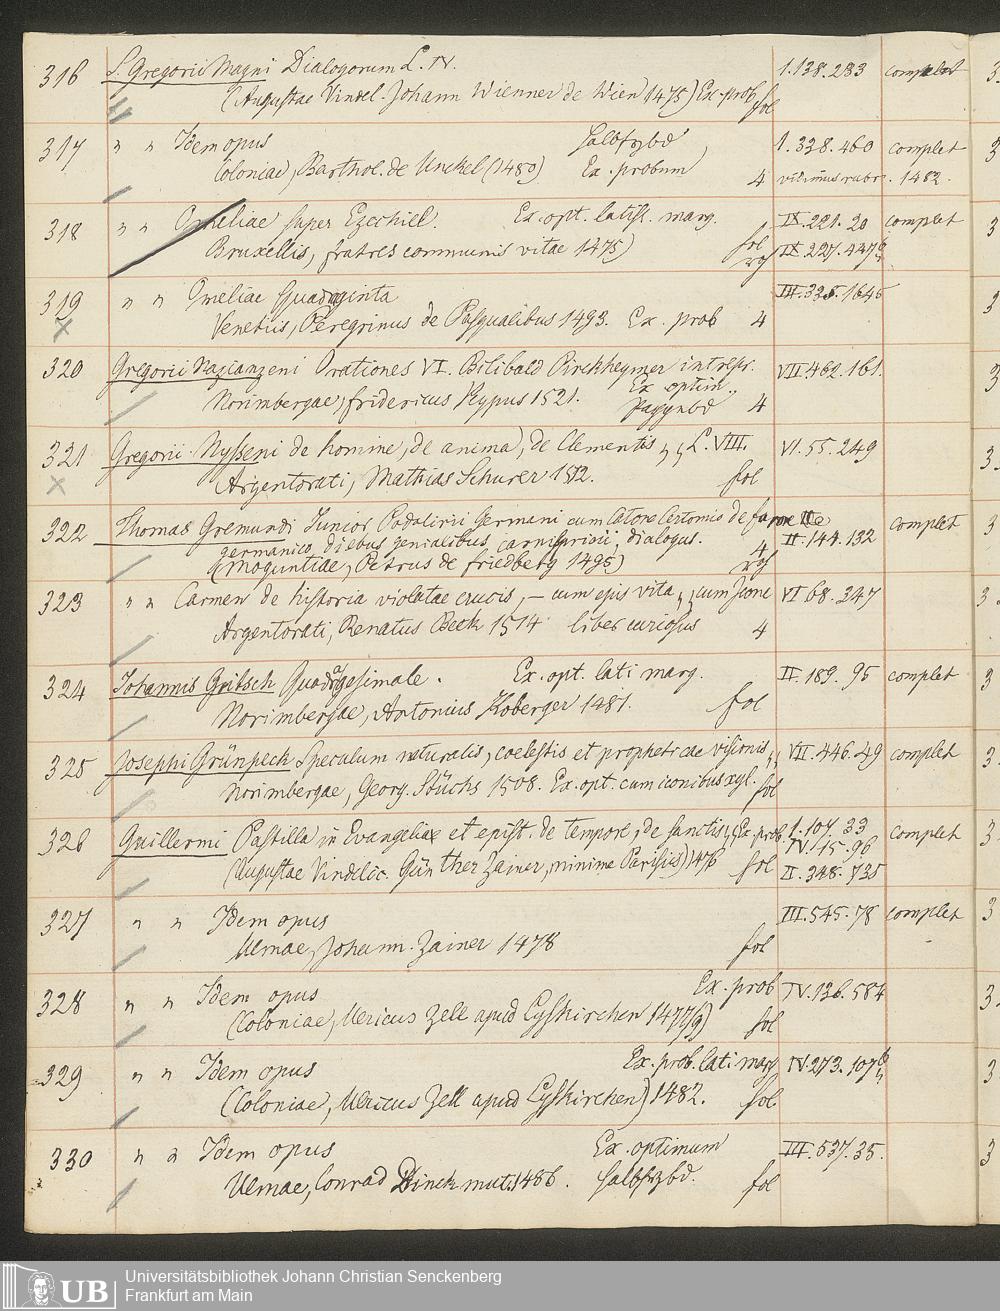 316 S. Gregorii Magni Dialogorum L. IV. 1.138.283 complet
(Augustae Vindel. Johann Wienner de Wien 1475) Ex. prob fol
317 " " Idem opus halbfrzbd 1.328.460 complet
Coloniae, Barthol. de Unckel (1480) Ex. probum 4 1482.
318 " " Omeliae super Ezechiel. Ex. opt. latiss. marg. IX.221.20 complet
Bruxellis, fratres communis vitae 1475) fol IX.227.
319 " " Omeliae Quadraginta III.325.1645
Venetiis, Peregrinus de Pasqualibus 1493. Ex. prob 4
320 Gregorii Nazianzeni Orationes VI. Bilibald Pirckheymer interpr. VII.462.161.
Ex optim.
Norimbergae, fridericus Peypus 1521. 4
321 Gregorii Nysseni de homine, de anima, de Clementis L. VIII. VI.55.249
Argentorati, Mathias Schurer 1512. fol
322 Thomas Gremundi Junior Podalirii Germani cum Catone Certomio de complet
germanico, diebus genialibus dialogus. 4 II.144.132
(Moguntiae, Petrus de friedberg 1495)
323 " " Carmen de historia violatae crucis, – cum ejus vita VI 68.347
Argentorati, Renatus Beck 1514 liber curiosus 4
324 Johannis Gritsch Quadragesimale. Ex. opt. lati marg. II.189.95 complet
Norimbergae, Antonius Koberger 1481. fol
325 Josephi Grünpeck Speculum naturalis, coelestis et propheticae visionis VII.446.49 complet
Norimbergae, Georg. Stüchs 1508. Ex. opt. cum iconibus xyl. fol
326 Guillermi Postilla in Evangeliae et epist. de tempore, de sanctis Ex. prob. 1.107.33 complet
IV.15.96
(Augustae Vindelic. Günther Zainer, minime Parisiis) 1476 fol II.348.735
327 " " Idem opus III.545.78 complet
Ulmae, Johann. Zainer 1478 fol
328 " " Idem opus Ex. prob IV.136.584
(Coloniae, Ulricus Zell apud Lyskirchen 1477/9) fol
329 " " Idem opus Ex. prob. lati marg IV.273.107
(Coloniae, Ulricus Zell apud Lyskirchen) 1482. fol.
330 " " Idem opus Ex. optimum III.537.35.
Ulmae, Conrad Dinckmut. 1486. halbfrzbd. fol
UB
Universitätsbibliothek Johann Christian Senckenberg
Frankfurt am Main